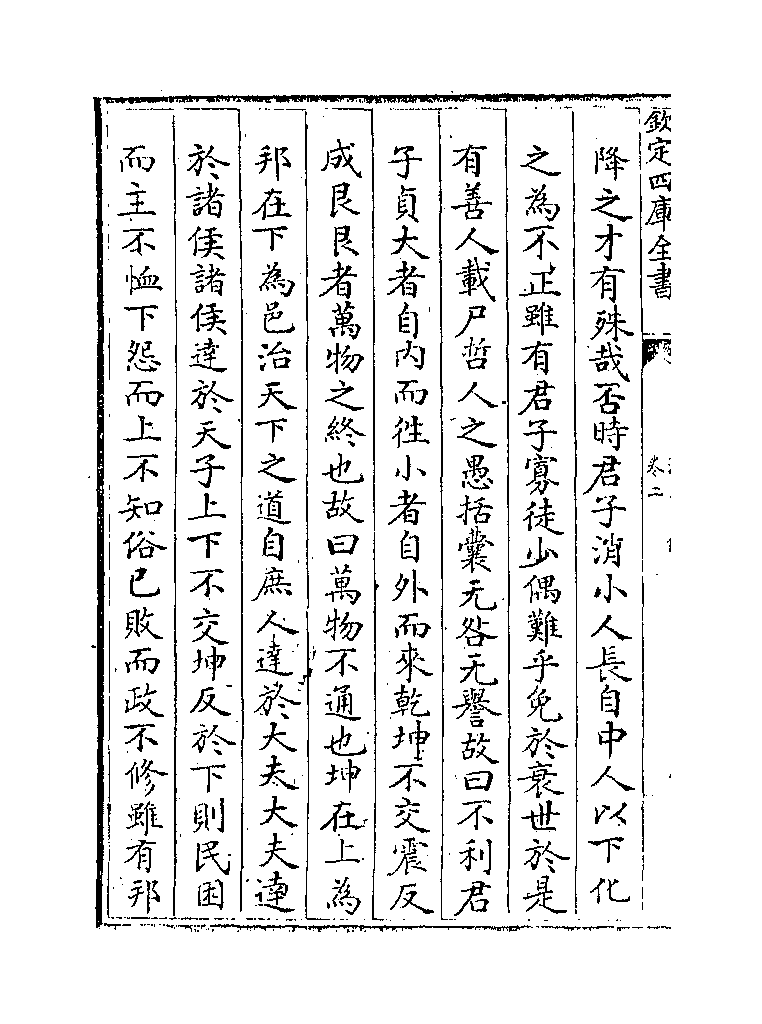 欽定四庫全書
卷二
降之才有殊哉否時君子消小人長自中人以下化
之為不正雖有君子寡徒少偶難乎免於衰世於是
有善人載尸哲人之愚括囊无咎无譽故曰不利君
子貞大者自内而徃小者自外而來乾坤不交震反
成艮艮者萬物之終也故曰萬物不通也坤在上為
邦在下為邑治天下之道自庶人達於大夫大夫達
於諸侯諸侯達於天子上下不交坤反於下則民困
而主不恤下怨而上不知俗已敗而政不修雖有邦